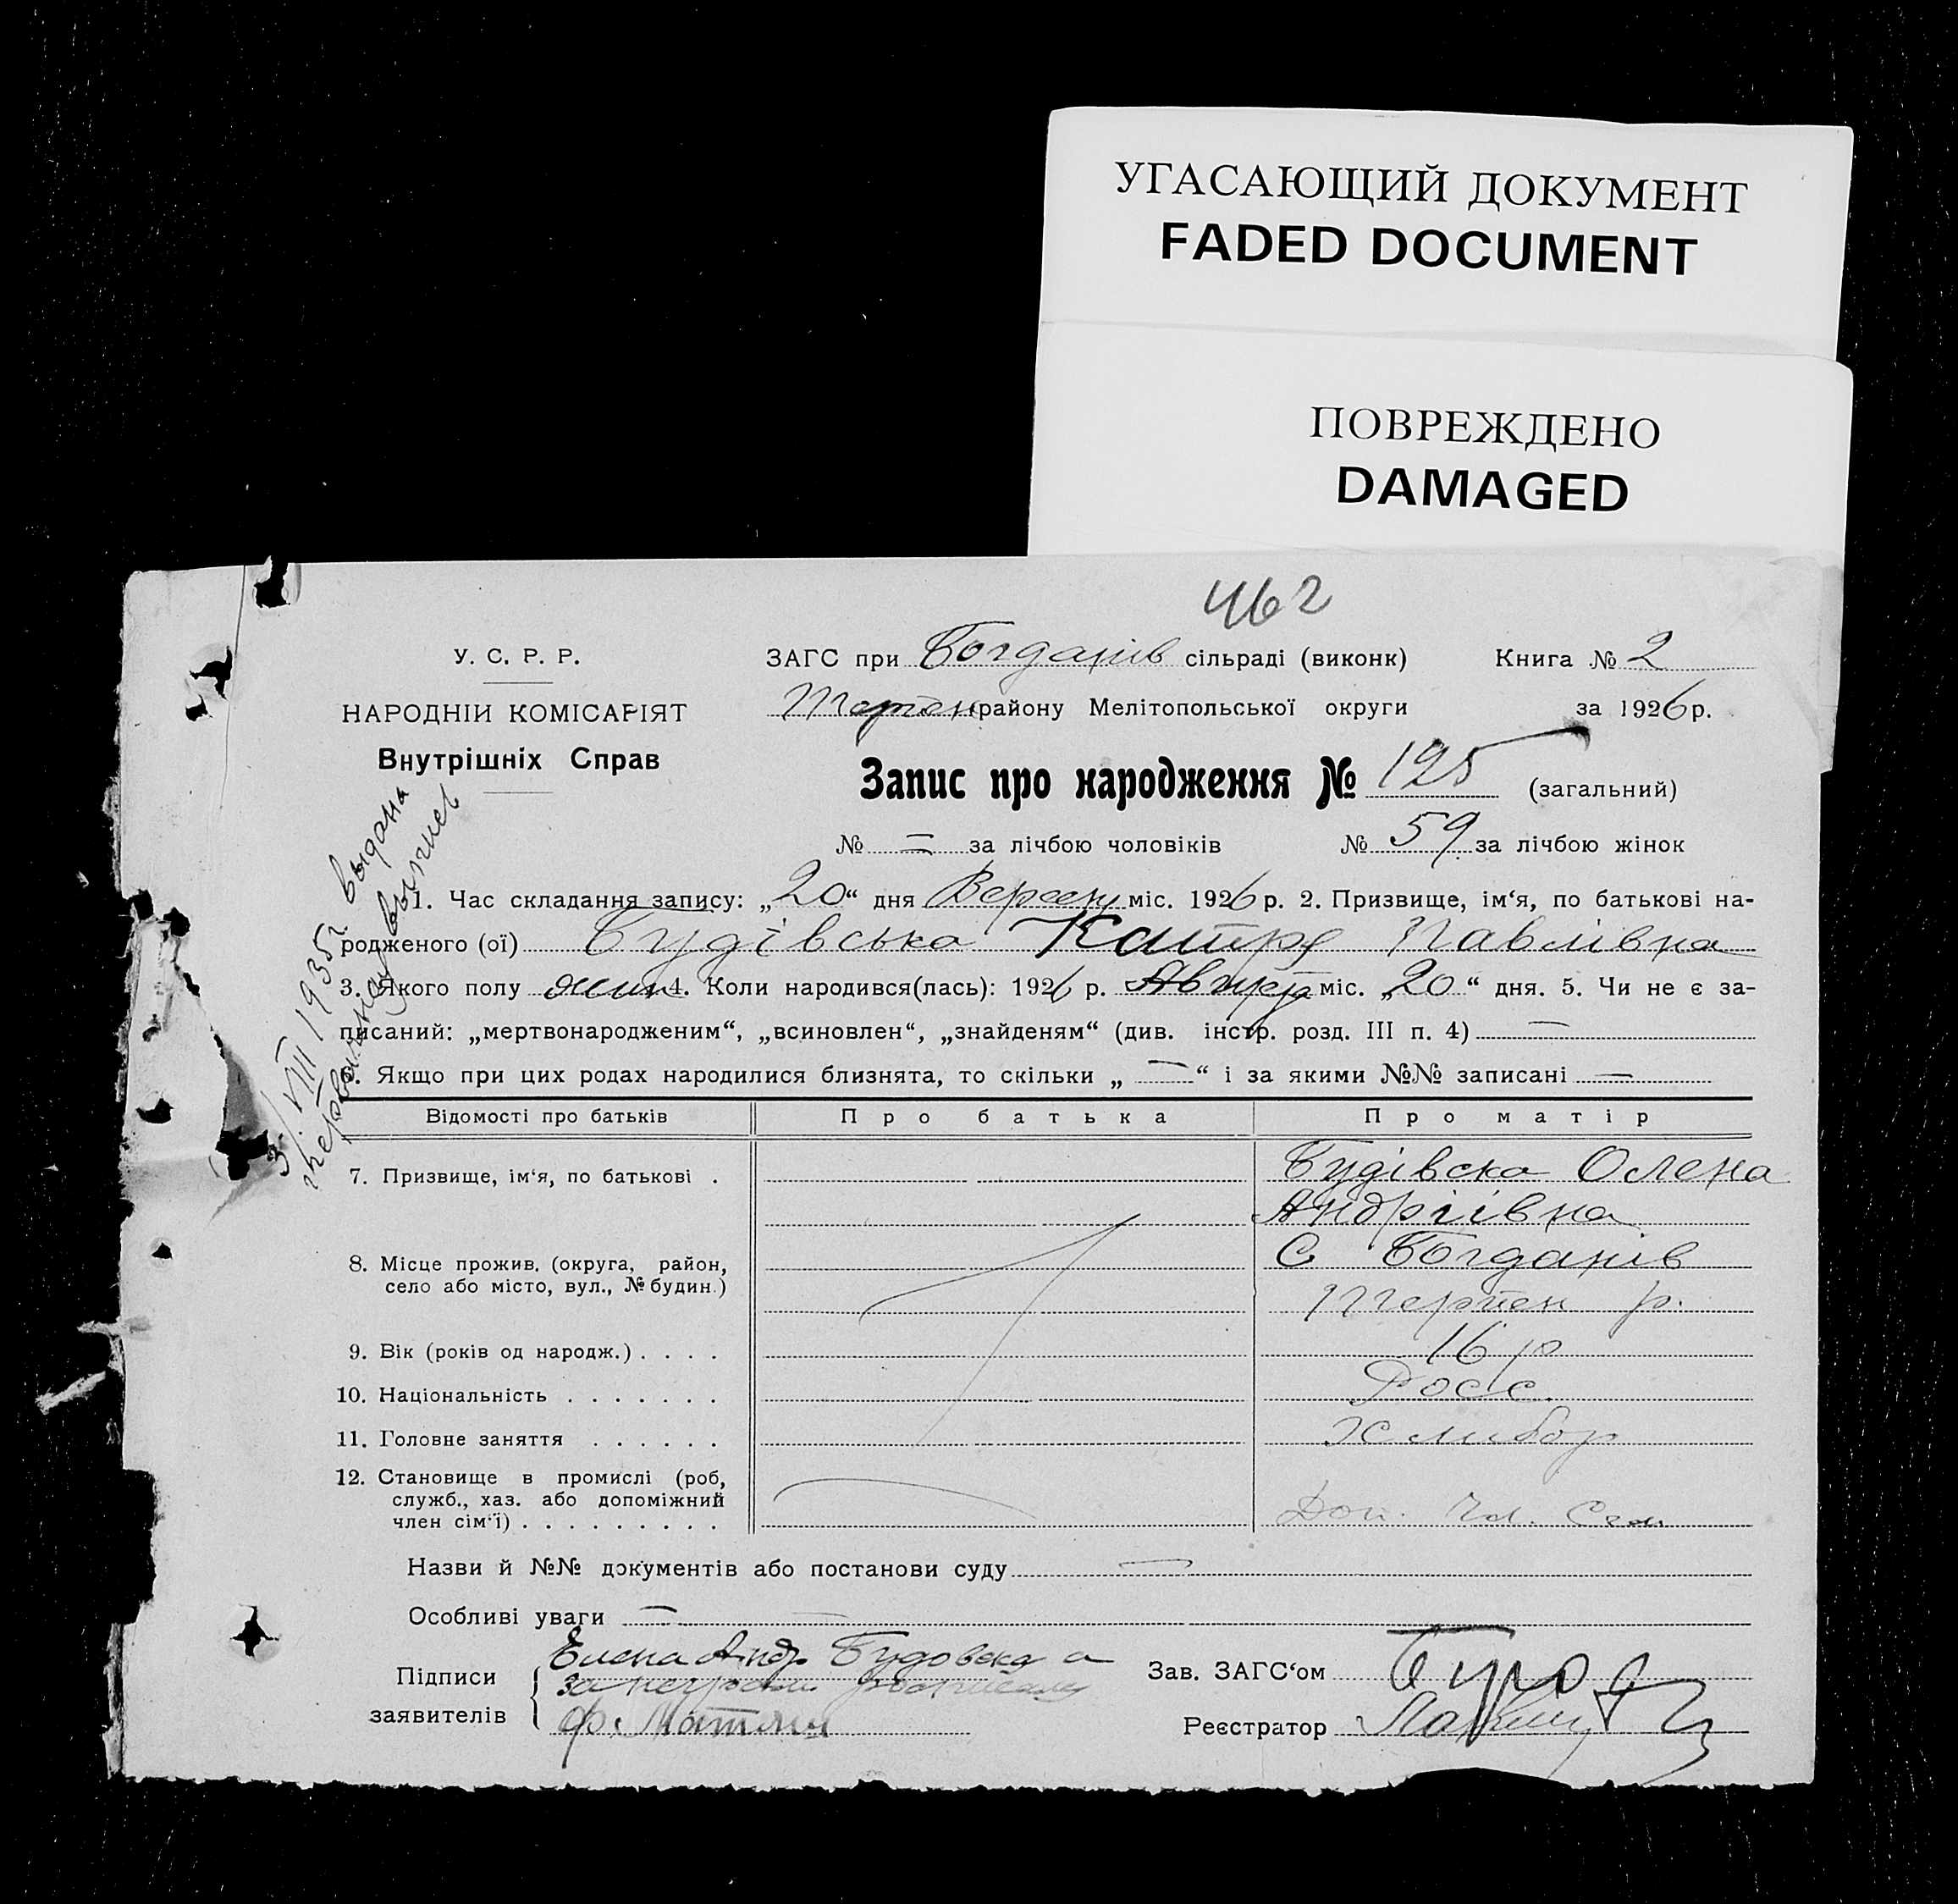 УГАСАЮЩИЙ ДОКУМЕНТ
FADED DOCUMENT
ПОВРЕЖДЕНО
DAMAGED
462
У. С. Р. Р.
НАРОДНІЙ КОМІСАРІЯТ
Внутрішніх Справ
ЗАГС при Богданів сільраді (виконк) Книга № 2
Терпен району Мелітопольської округи за 1926 р.
Запис про народження № 125 (загальний)
№ — за лічбою чоловіків № 59 за лічбою жінок
3/VIII 1935 г выдана
1. Час складання запису: „20“ дня Вересня міс. 1926 р. 2. Призвище, ім‘я, по батькові на-
родженого (ої) Будівська Катря Павлівна
3. Якого полу жин 4. Коли народився(лась): 1926 р. Август міс. „20“ дня. 5. Чи не є за-
писаний: „мертвонародженим“, „всиновлен“, „знайденям“ (див. інстр. розд. III п. 4) —
6. Якщо при цих родах народилися близнята, то скільки „ — “ і за якими №№ записані —
Відомості про батьків Про батька Про матір
7. Призвище, ім‘я, по батькові . Будівска Олена
Андріівна
8. Місце прожив. (округа, район, С Богданів
село або місто, вул., № будин.) Терпен р.
9. Вік (років од народж.) . . . . 16 р
10. Національність . . . . . . . Росс.
11. Головне заняття . . . . . . Хлибор
12. Становище в промислі (роб,
служб., хаз. або допоміжний
член сім‘ї) . . . . . . . . . Доп. Чл. Сем.
Назви й №№ документів або постанови суду —
Особливі уваги —
Елена Андр Будовска
Підписи за неграм
заявителів ф.
Зав. ЗАГС‘ом
Реєстратор